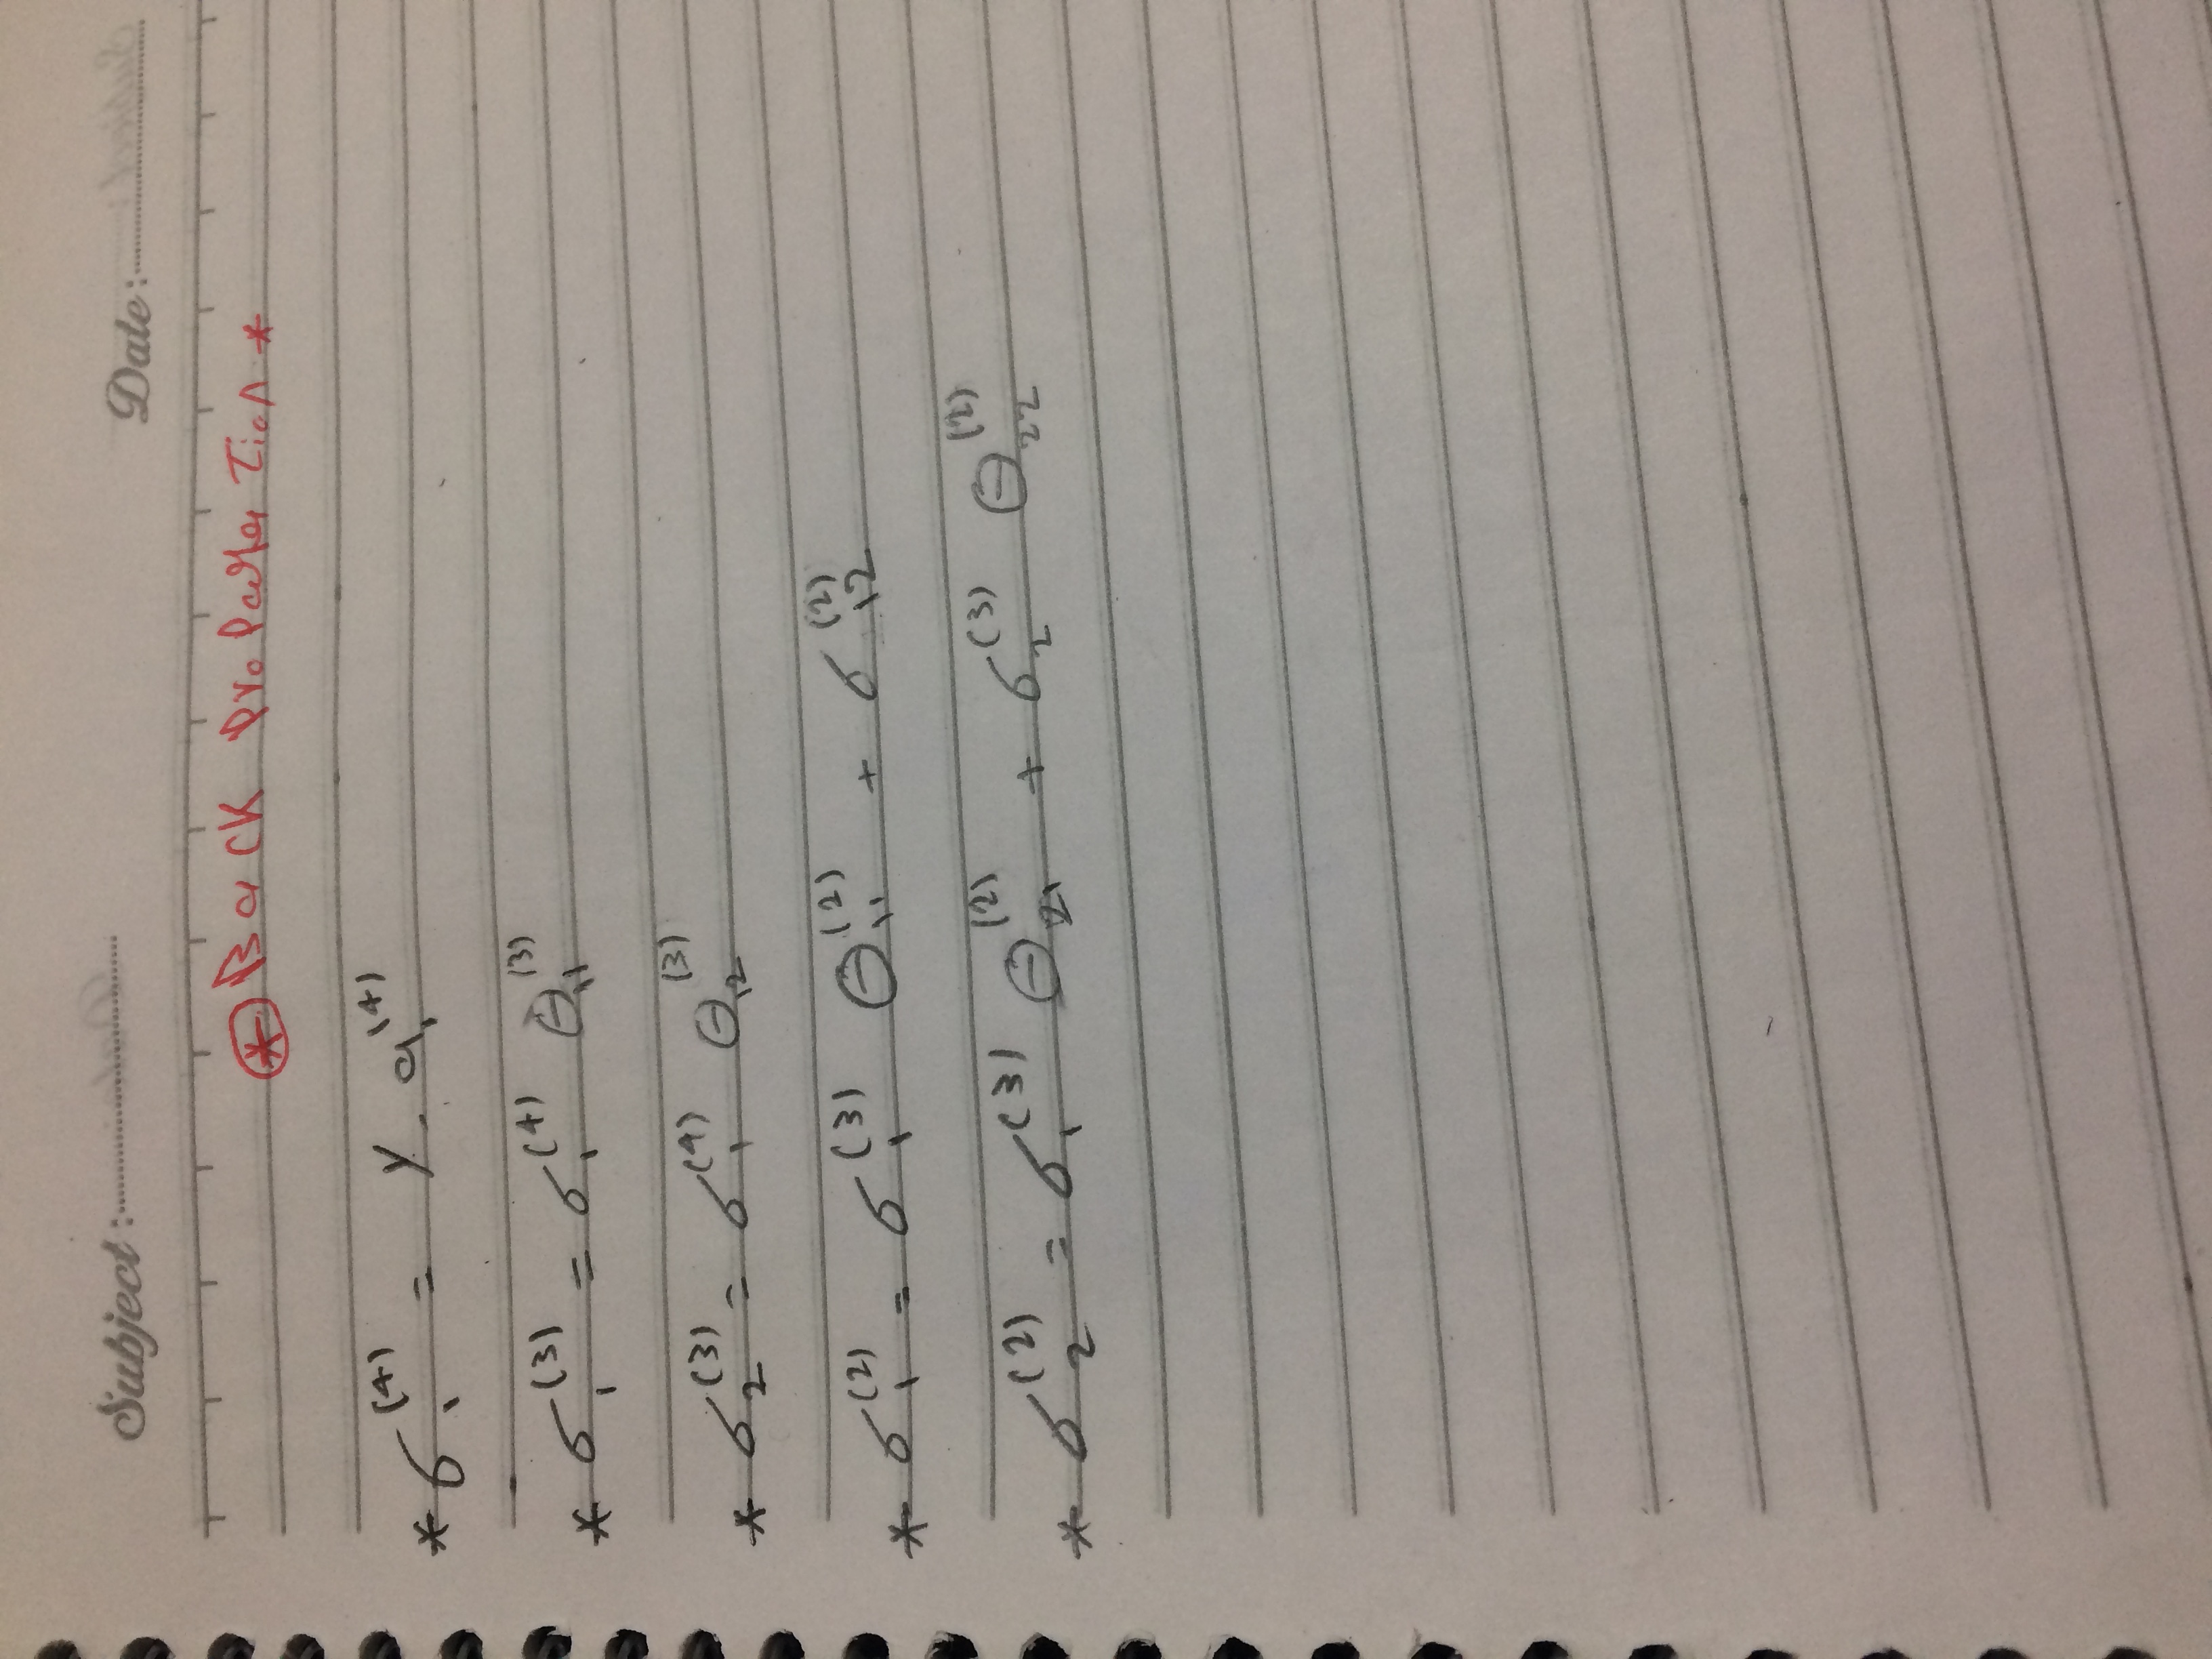 Subject: Date:
* Back Propagation *
* σ₁⁽⁴⁾ = y - a₁⁽⁴⁾
* σ₁⁽³⁾ = σ₁⁽⁴⁾ Θ₁₁⁽³⁾
* σ₂⁽³⁾ = σ₁⁽⁴⁾ Θ₁₂⁽³⁾
* σ₁⁽²⁾ = σ₁⁽³⁾ Θ₁₁⁽²⁾ + σ₁₂⁽²⁾
* σ₂⁽²⁾ = σ₁⁽³⁾ Θ₂₁⁽²⁾ + σ₂⁽³⁾ Θ₂₂⁽²⁾